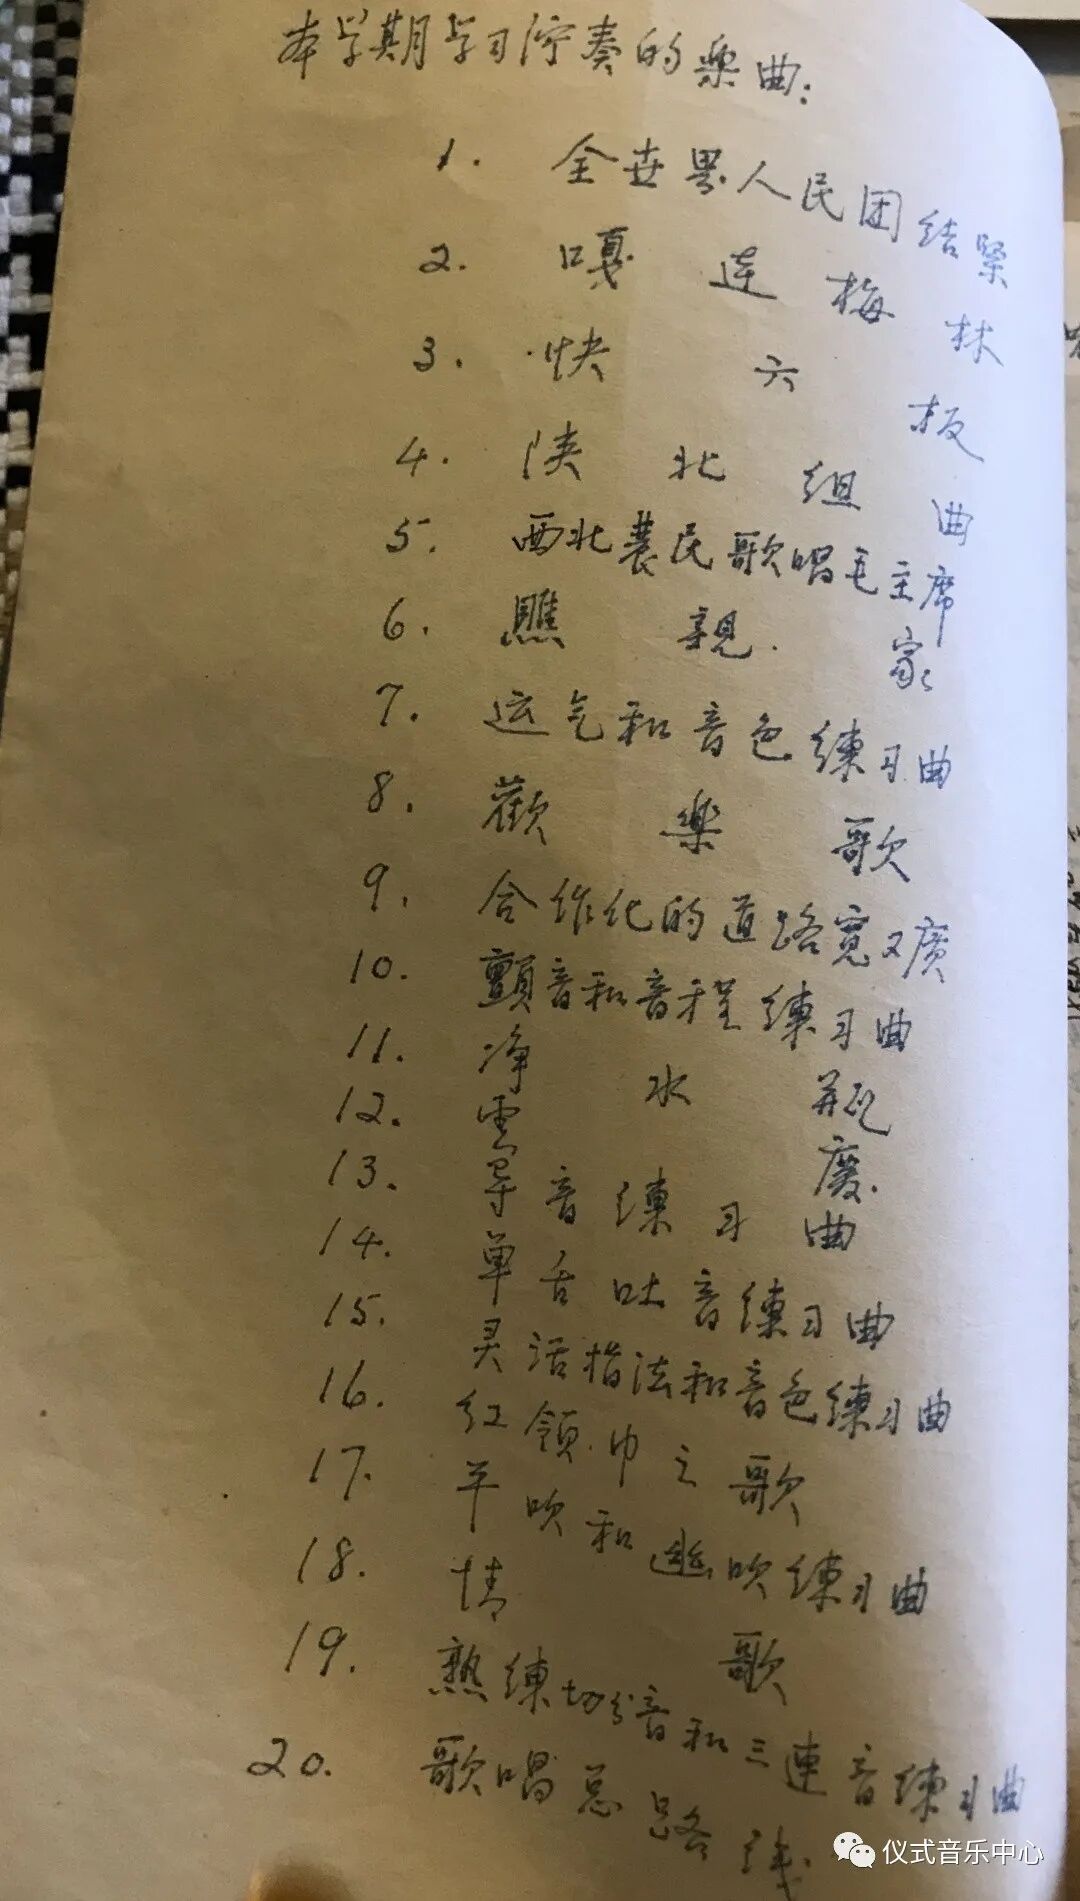 本学期学习演奏的樂曲:
1. 全世界人民团结紧
2. 嘎达梅林
3. 快六板
4. 陕北组曲
5. 西北農民歌唱毛主席
6. 瞧親家
7. 运气和音色練习曲
8. 歡樂歌
9. 合作化的道路寬又廣
10. 顫音和音程練习曲
11. 净水瓶
12. 雲慶
13. 导音練习曲
14. 单舌吐音練习曲
15. 灵活指法和音色練习曲
16. 红领巾之歌
17. 平吹和超吹練习曲
18. 情歌
19. 熟練切分音和三連音練习曲
20. 歌唱总路线
仪式音乐中心